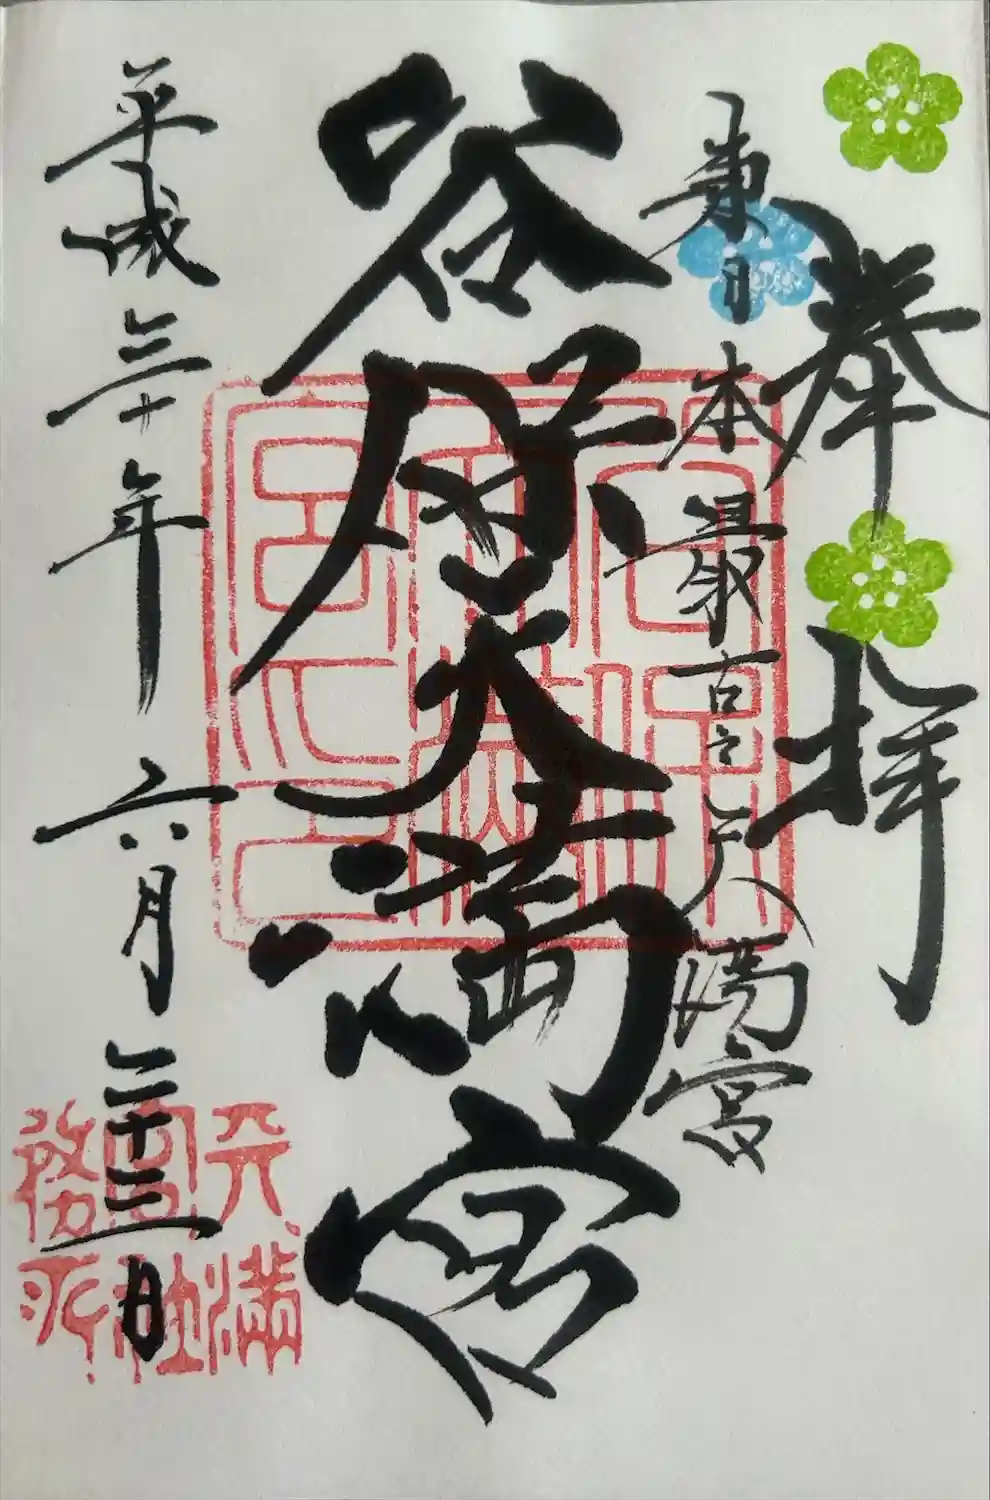 奉拝
東日本最古之天満宮
谷保天満宮
平成三十年 六月二十三日
天満宮社務所